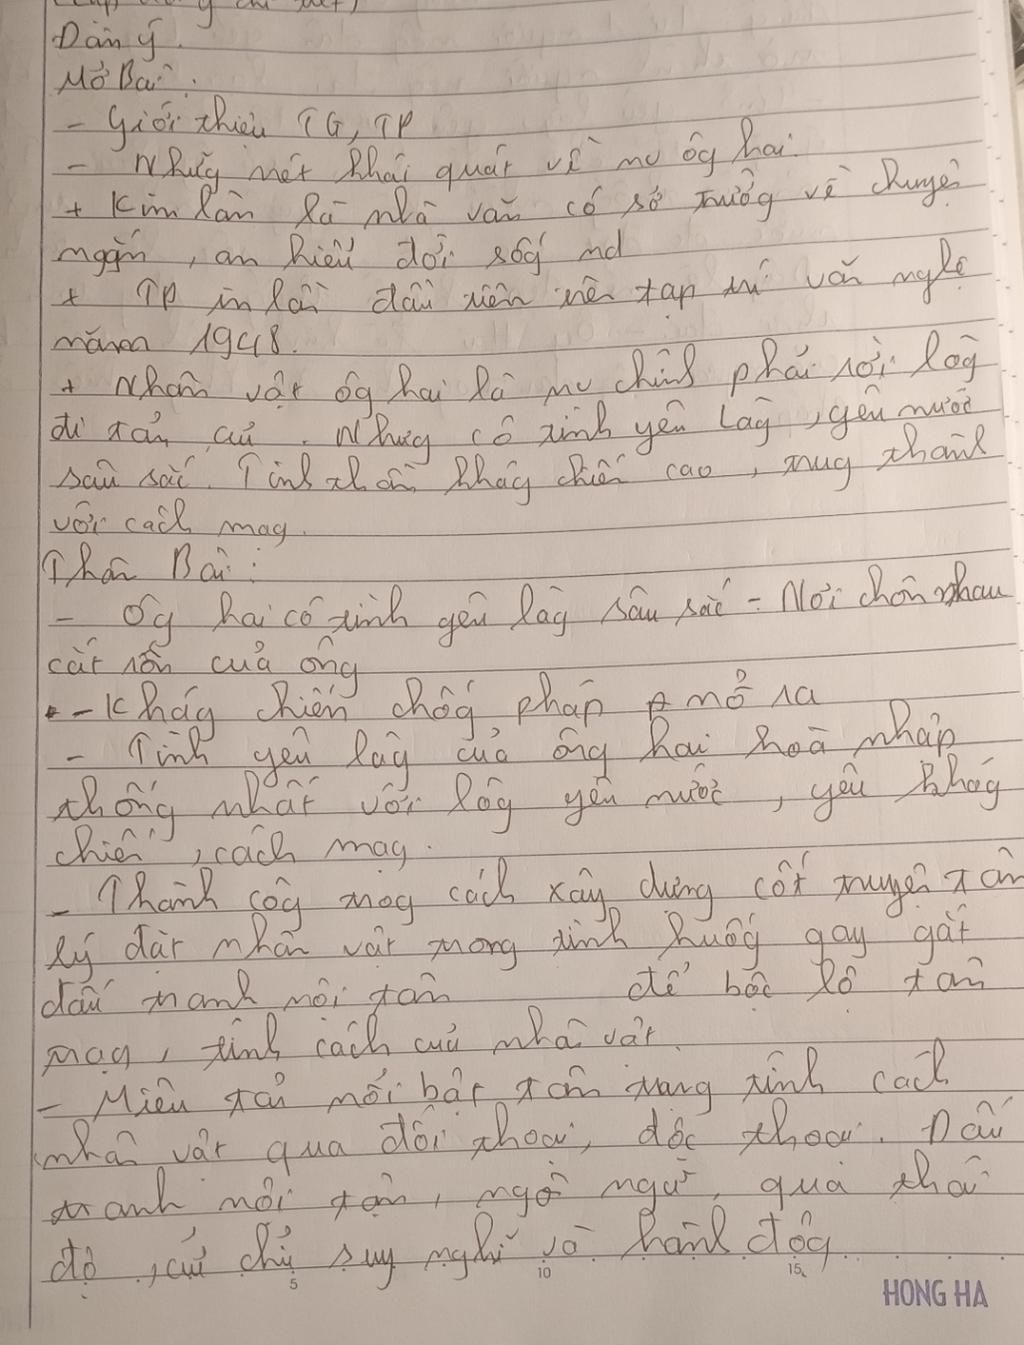 Dàn ý.
Mở Bài:
- Giới thiệu TG, TP
- Nhữg nét khái quát về nv ôg hai.
+ Kim lân là nhà văn có sở trườg về chuyện
ngắn, am hiểu đời sốg nd
+ TP in lần đầu tiên trên tạp trí văn nghệ
năm 1948.
+ Nhân vật ôg hai là nv chính phải rời làg
đi tản cư. Nhưg có tình yêu làg, yêu nước
sâu sắc. Tinh thần khág chiến cao, trug thành
với cách mạg.
Thân Bài:
- Ôg hai có tình yêu làg sâu sắc - Nơi chôn nhau
cắt rốn của ông
- Khág chiến chốg pháp mở ra
- Tình yêu làg của ông hai hoà nhập
thống nhất với lòg yêu nước, yêu khág
chiến, cách mạg.
- Thành côg trog cách xây dựng cốt truyện tâm
lý đặt nhân vật trong tình huốg gay gắt
đấu tranh nội tâm để bộc lộ tâm
trạg, tính cách của nhân vật.
- Miêu tả nổi bật tâm trạng tính cách
nhân vật qua đối thoại, độc thoại. Đấu
tranh nội tâm, ngôn ngữ, qua thái
độ, cử chỉ suy nghĩ và hành độg
5 10 15
HONG HA